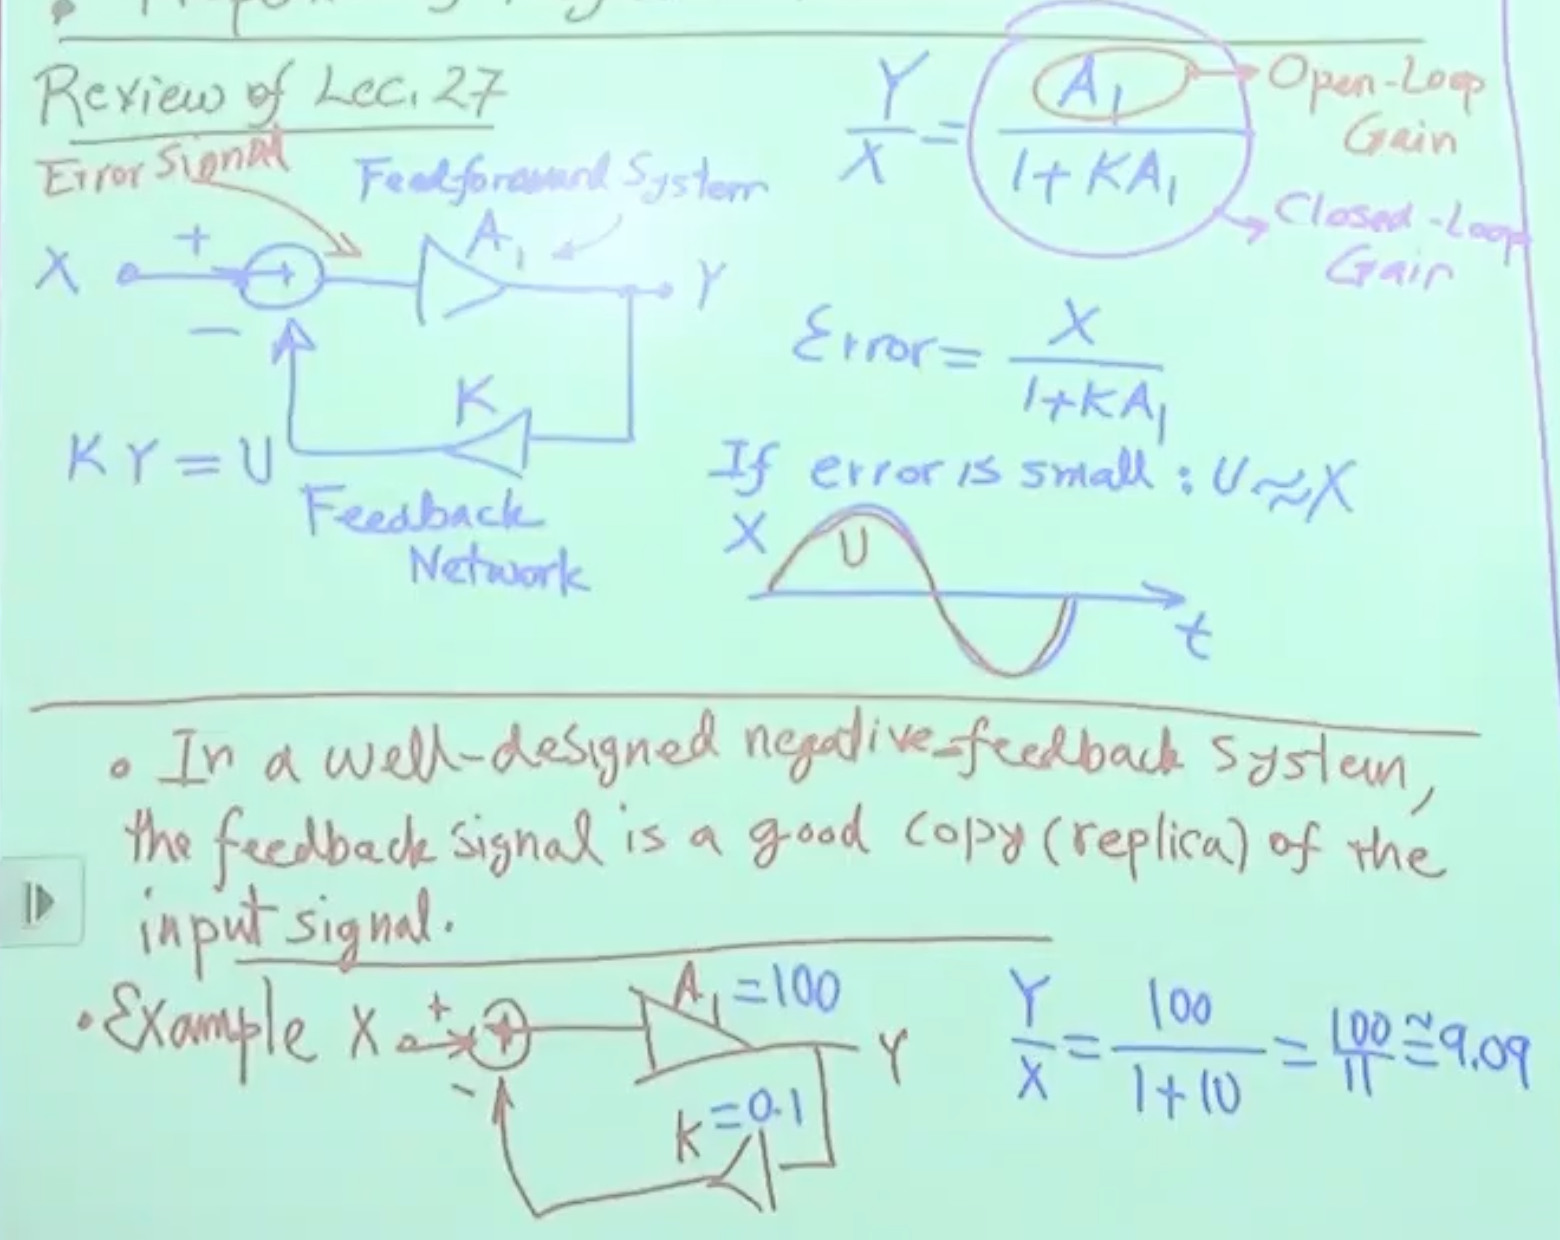 Review of Lec. 27
Error Signal
Feedforward System
X + − A₁ Y
K
KY = U
Feedback
Network
Y/X = A₁/(1+KA₁)
Open-Loop
Gain
Closed-Loop
Gain
Error = X/(1+KA₁)
If error is small : U ≈ X
X U t
• In a well-designed negative-feedback system,
the feedback signal is a good copy (replica) of the
input signal.
• Example X + − A₁ = 100 Y
K = 0.1
Y/X = 100/(1+10) = 100/11 ≅ 9.09